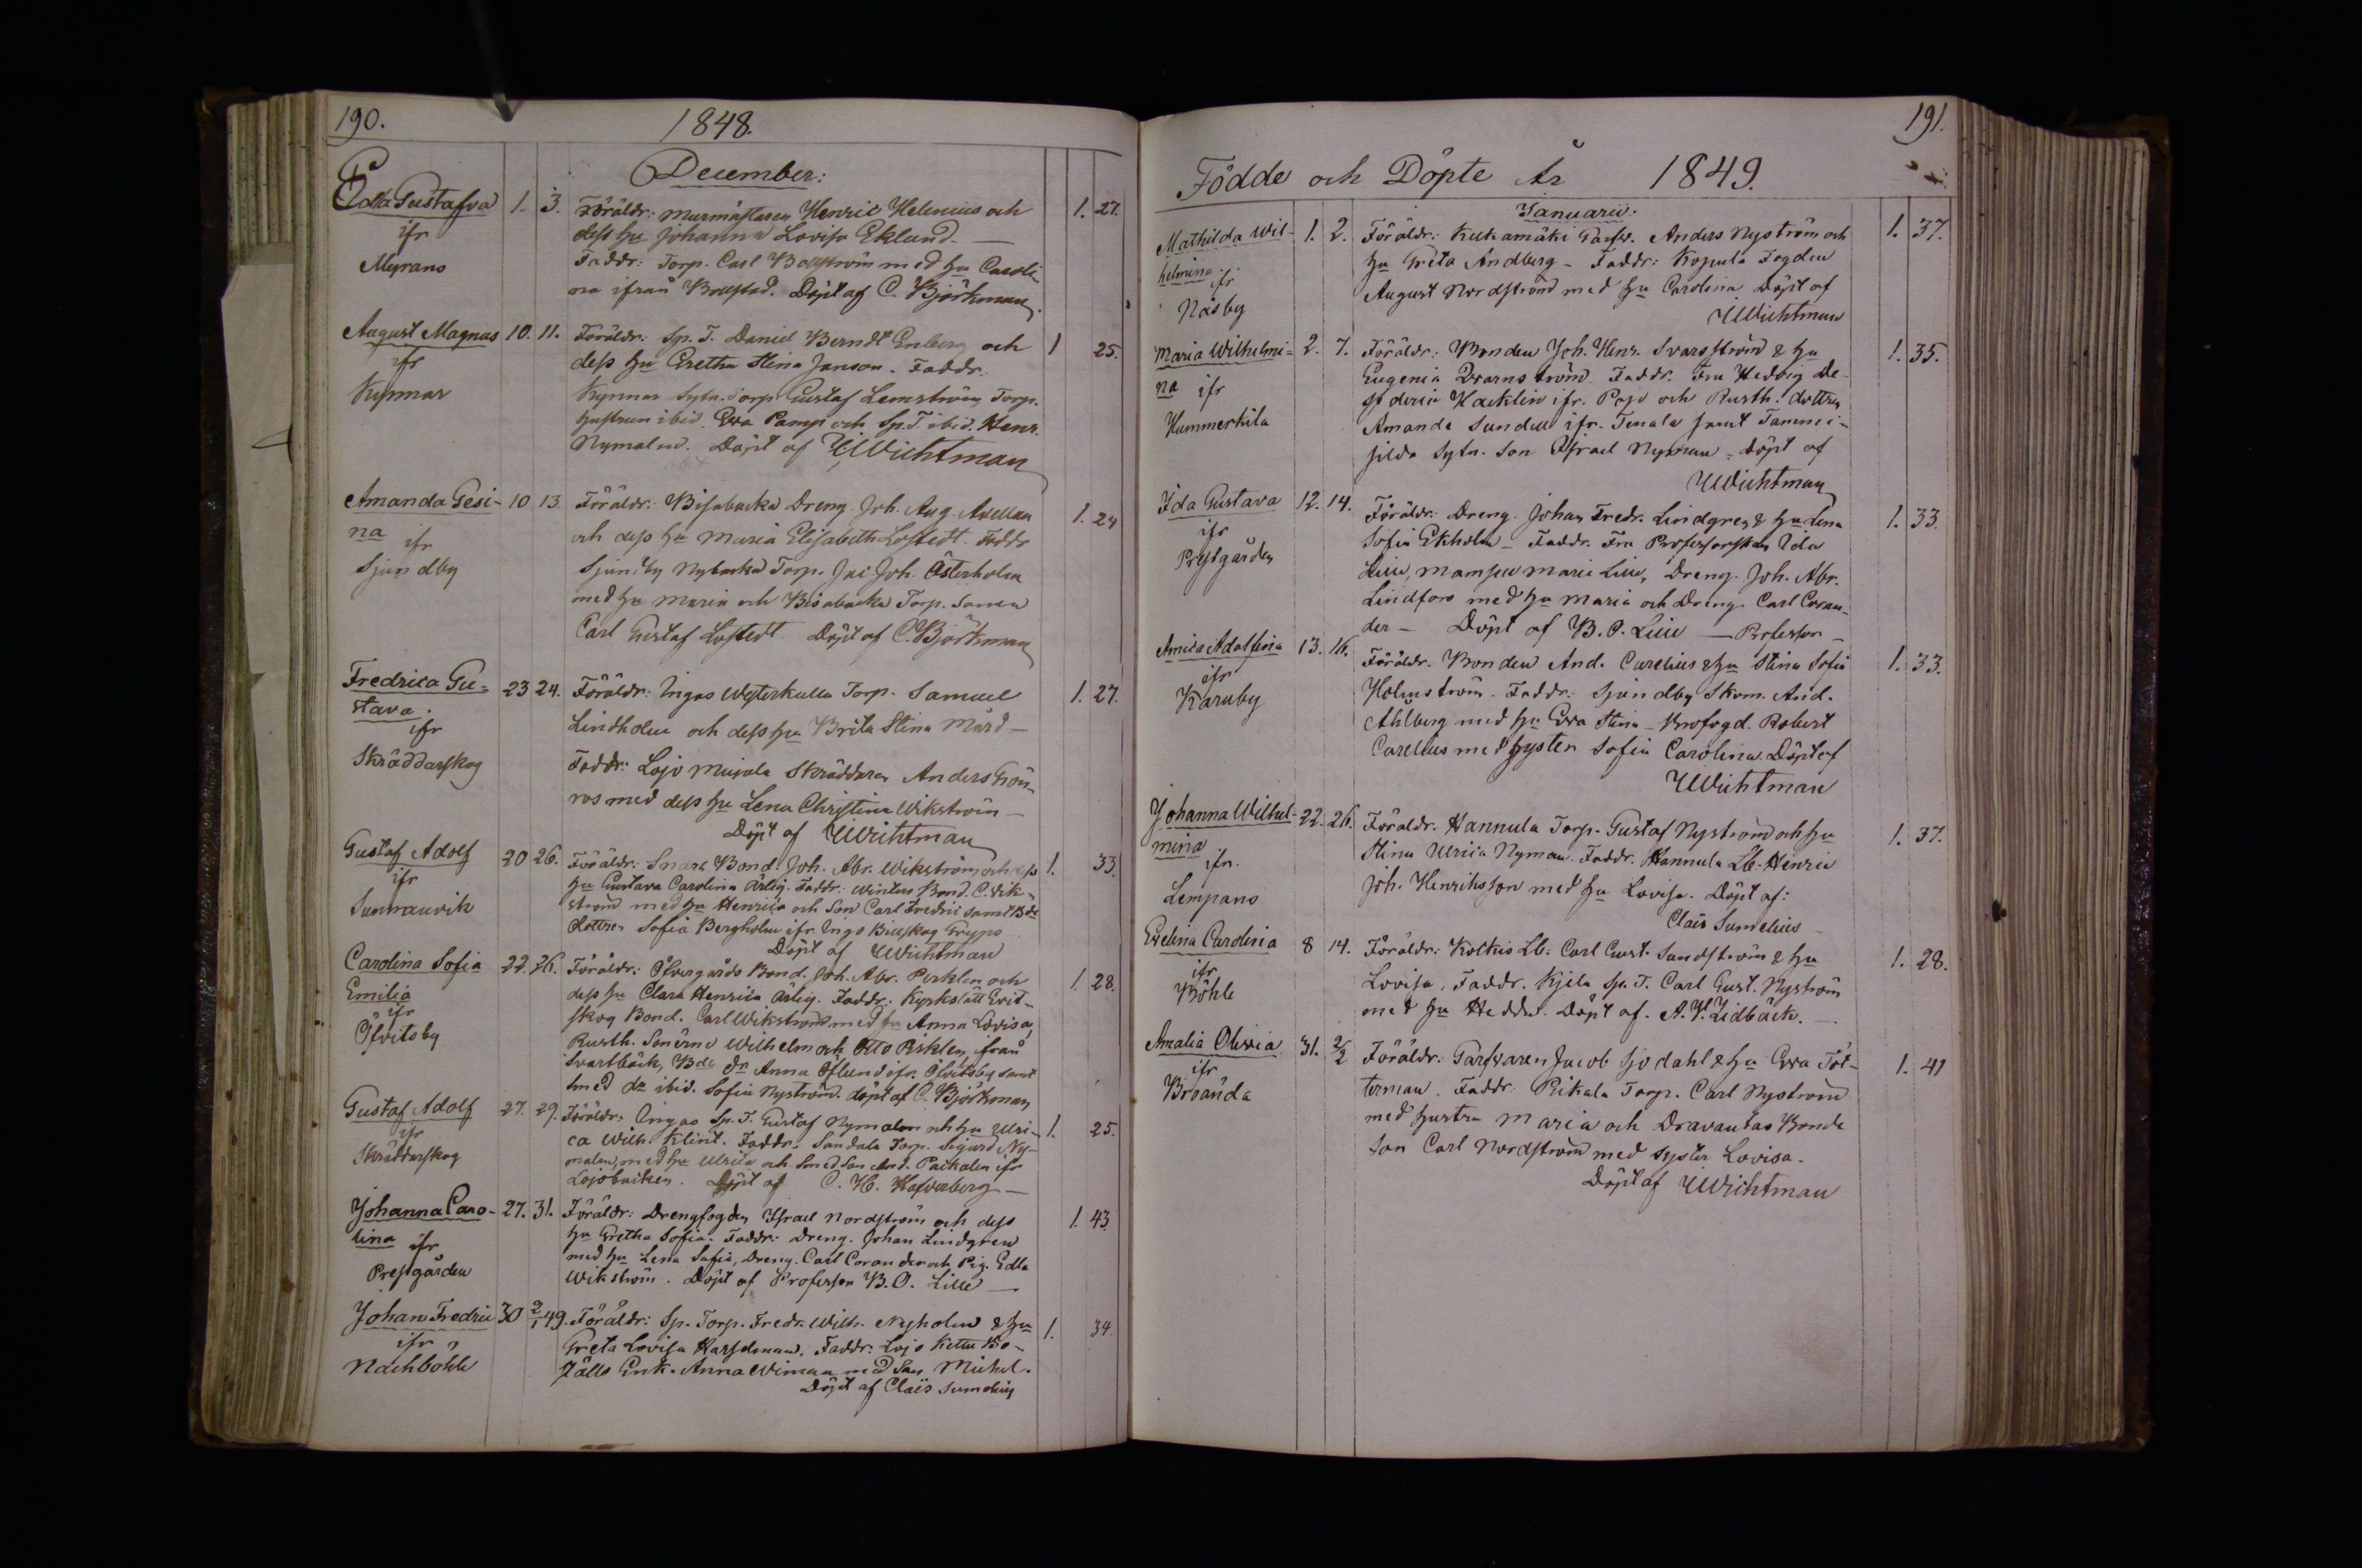 190.
1848.
December:
Edla Gustafva 1. 3. Föräldr: Murmästaren Henric Helenius och 1. 27.
ifr dess hu Johanna Lovisa Eklund. —
Myrans Faddr: Torp. Carl Bollström med hu Caroli-
na ifrån Bollstad. Döpt af C. Björkman.
August Magnus 10. 11. Föräldr: Sp. T. Daniel Berndt Enberg och 1 25.
ifr dess hu Gretha Stina Janson. Faddr.
Kynnar Kynnar Sytn. Torp Gustaf Lemström, Torp.
hustrun ibid. Eva Pamp och Sp. T. ibid. Henr.
Nymalm. Döpt af Wichtman
Amanda Gesi- 10 13. Föräldr: Bisabacka Dreng Joh. Aug. Avellan 1. 24
na ifr och dess hu Maria Elisabeth Lofstedt. Faddr
Sjundby Sjundby Nybacka Torp. Joh. Österholm
med hu Maria och Bisabacka Torp. Sonen
Carl Gustaf Lofstedt. Döpt af C. Björkman
Fredrica Gu- 23 24. Föräldr: Ingos Westerkulla Torp. Samuel 1. 27.
stava. Lindholm och dess hu Brita Stina Mård —
ifr
Skräddarskog Faddr: Lojo Muijala Skräddaren Anders Grön-
ros med dess hu Lena Christina Wikström —
Döpt af Wichtman
Gustaf Adolf 20 26. Föräldr: Snarl Bond. Joh. Abr. Wikström och dess 1. 33.
ifr hu Gustava Carolina Ärlig. Faddr: Bond. C. Wik-
Sunnanvik ström med hu Henrica och Son Carl Fredric samt Bde
dottren Sofia Bergholm ifr. Ingo
Döpt af Wichtman
Carolina Sofia 22. 26. Föräldr: Öfvergårds Bond. Joh. Abr. Perklen och 1. 28.
Emilia dess hu Clara Henrica Ärlig. Faddr: Kyrkslätt Evit-
ifr skog Bond. Carl Wikström med hu Anna Lovisa,
Öfvitsby Rusth. Sönerne Wilhelm och Otto Perklen, ifrån
Svartbäck, Bde dr Anna Öflund ifr. Öfvitsby samt
Smed dr ibid. Sofia Nyström. döpt af C. Björkman
Gustaf Adolf 27. 29. Föräldr: Ingas Sp. T. Gustaf Nymalm och hu Ulri- 1. 25.
ifr ca Wilh. Klint. Faddr: Sandala Torp. Sigurd Ny-
Skräddarskog malm, med hu Ulrica och Smed Son And. Packalen ifr
Lojobacken. Döpt af C. H. Hafverberg —
Johanna Caro- 27. 31. Föräldr: Drengfogden Israel Nordström och dess 1. 43
lina ifr hu Gretha Sofia. Faddr: Dreng. Johan Lindgren
Prestgården med hu Lena Sofia, Dreng. Carl Corander och Pig. Edla
Wikström. Döpt af Professor B. O. Lille —
Johan Fredric 30 2/1 49. Föräldr: Sp. Torp. Fredr. Wilh. Nyholm & hu 1. 34.
ifr Greta Lovisa Hasselman. Faddr: Lojo Kettu Bo-
Nackböhle ställs Enk. Anna Wiman med Son Michel.
Döpt af Claës Sumelius
191.
Födde och Döpte År 1849.
Januarii.
Mathilda Wil- 1. 2. Föräldr: Kukamäki Garfv. Anders Nyström och 1. 37.
helmina ifr hu Greta Andberg – Faddr: Kopula Fogden
Näsby August Nordström med hu Carolina Döpt af
Wichtman
Maria Wilhelmi- 2. 7. Föräldr: Bonden Joh. Henr. Svarsström & hu 1. 35.
na ifr Eugenia Qvarnström. Faddr. Fru Hedvig De-
Hummerkila sideria Hacklin ifr. Pojo och Rusth. dottren
Amanda Sundell ifr. Tenala samt Tammi-
Sytn. Son Israel Nyman – Döpt af
Wichtman
Ida Gustava 12. 14. Föräldr: Dreng. Johan Fredr. Lindgren & hu Lena 1. 33.
ifr Sofia Ekholm – Faddr. Fru Professorskan Ida
Prestgården Lille, Mamsell Marie Lille, Dreng. Joh. Abr.
Lindfors med hu Maria och Dreng. Carl Coran-
der – Döpt af B. O. Lille — Professor –
Amica Adolfina 13. 16. Föräldr. Bonden And. Carelius & hu Stina Sofia 1. 33.
ifr Holmström. Faddr: Sjundby Skom. And.
Karuby Ahlberg med hu Eva Stina – Brofogd. Robert
Carelius med Syster Sofia Carolina Döpt af
Wichtman
Johanna Wilhel- 22. 26. Föräldr. Hannula Torp. Gustaf Nyström och hu 1. 37.
mina Stina Ulrica Nyman. Faddr. Hannula Lb. Henric
ifr. Joh. Henriksson med hu Lovisa. Döpt af:
Lempans Claës Sumelius –
Evelina Carolina 8 14. Föräldr: Kolkis Lb. Carl Gust. Sundström & hu 1. 28.
ifr Lovisa, Faddr. Kjela Sp. T. Carl Gust. Nyström
Böhle med hu Hedda. Döpt af. A. V. Lidbäck. —
Amalia Olivia 31. 2/2 Föräldr: Garfvaren Jacob Sjödahl & hu Eva Töt- 1. 41
ifr terman. Faddr. Pikala Torp. Carl Nyström
Broända med hustru Maria och Dravantas Bonde
Son Carl Nordström med syster Lovisa.
Döpt af Wichtman